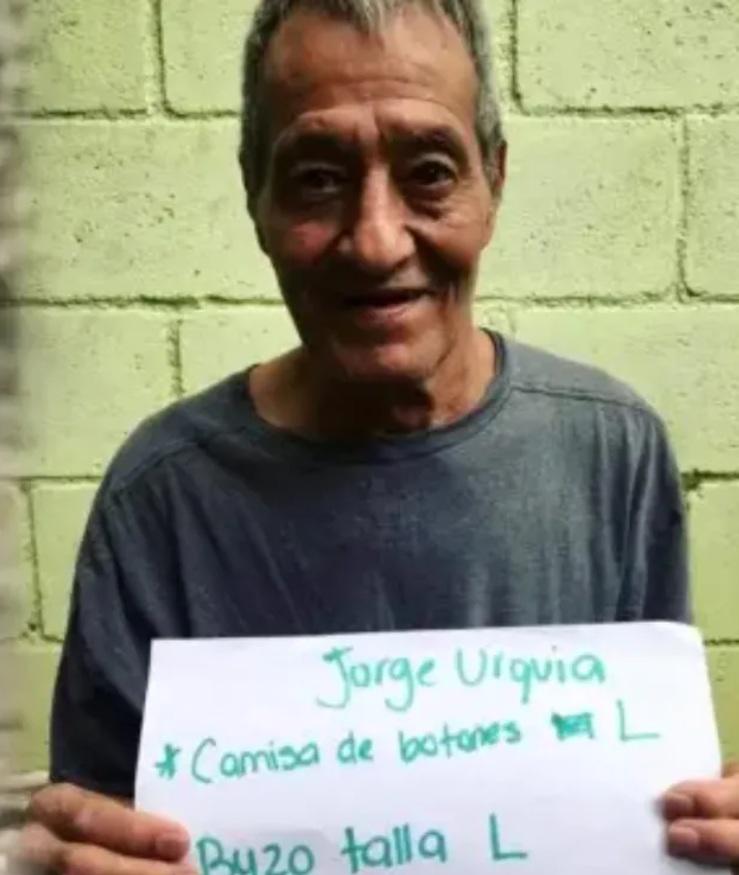 Jorge Urquia
* Camisa de botones L
Buzo talla L